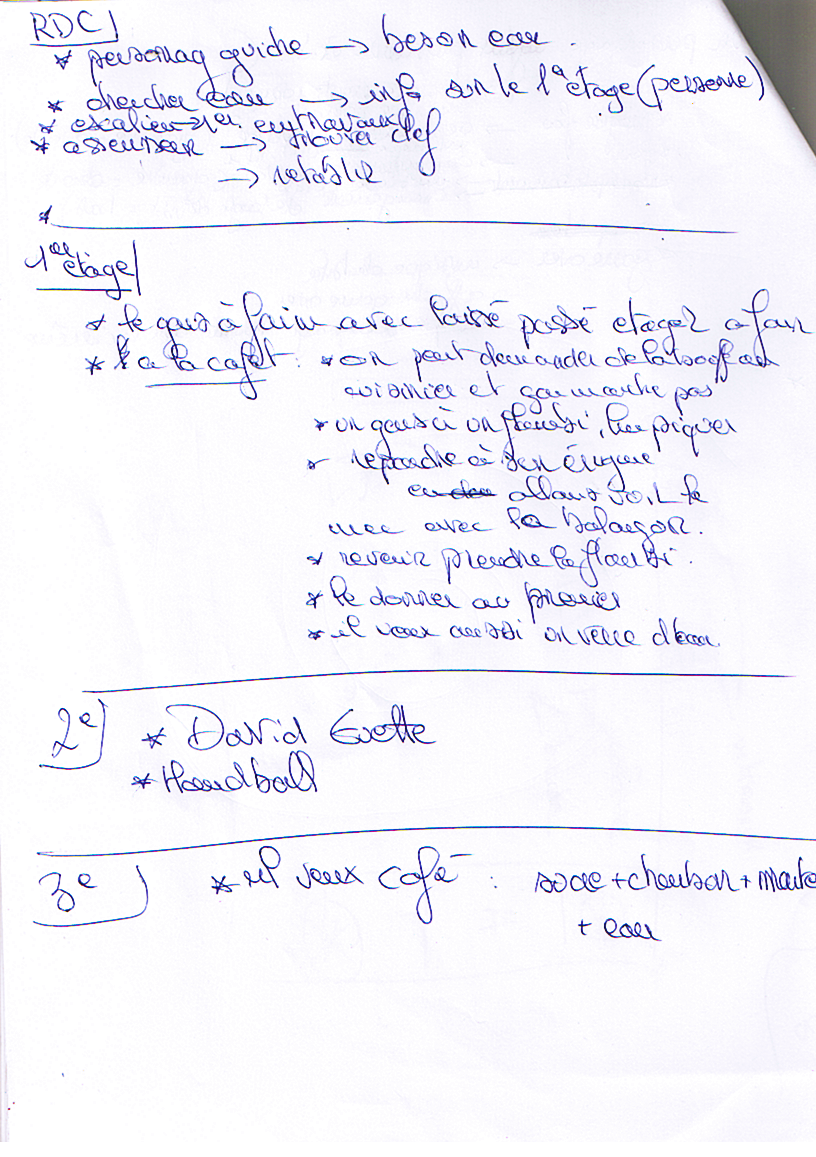 RDC
* personnag guiche → besoin eau.
* chercher eau → info sur le 1er étage (personne)
* escalier en travaux
* ascenseur → trouver clef
→ rétablir
*
1er étage
* le gars à faim avec laissé passé etage2 a faim
* à la cafet : * on peut demander de la bouf au
cuisinier et ça marche pas
* un gars à un flanbi, lui piquer
* repondre à son énigme
allant voir le
mec avec la balançoir.
* revenir prendre le flanbi.
* le donner au premier
* il veux aussi un verre d'eau
2e
* David Evotte
* Handball
3e
* il veux café : + charbon +
+ eau